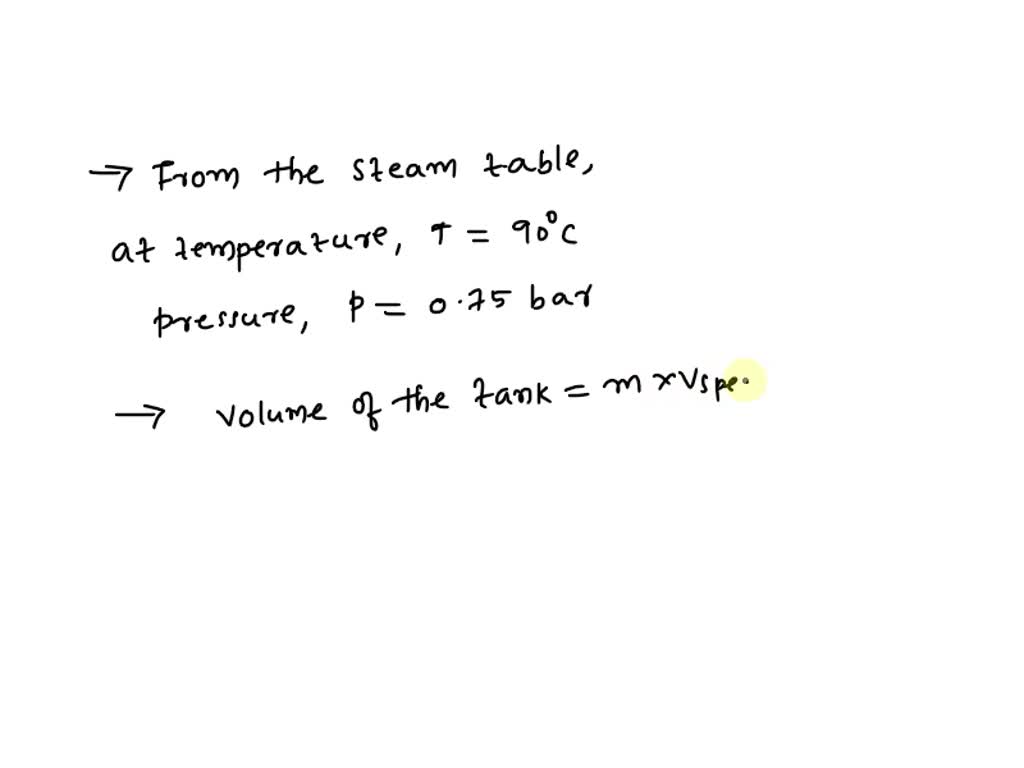 → From the steam table,
at temperature, T = 90°C
pressure, P = 0.75 bar
→ volume of the tank = m × Vspe.